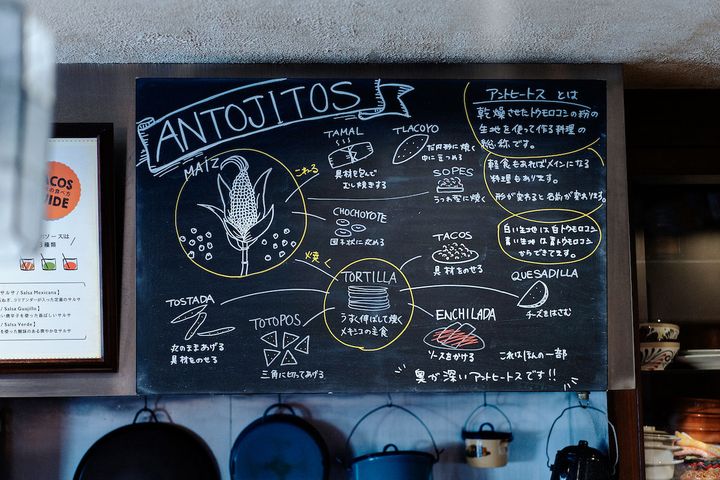 ANTOJITOS
MAÍZ
こねる
TAMAL
具材を包んで
むし焼きする
TLACOYO
だ円形に焼く
中に豆つめる
SOPES
うつわ型に焼く
CHOCHOYOTE
団子状に丸める
焼く
TACOS
具材をのせる
TORTILLA
うすく伸ばして焼く
メキシコの主食
QUESADILLA
チーズをはさむ
ENCHILADA
ソースをかける
TOSTADA
丸のままあげる
具材をのせる
TOTOPOS
三角に切ってあげる
アントヒートス とは
乾燥させたトウモロコシの粉の
生地を使って作る料理の
総称です。
軽食もあればメインになる
料理もあります。
形が変わると名前が変わります。
白い生地は白トウモロコシ
黄い生地は黄トウモロコシ
からできてます。
これはほんの一部
奥が深いアントヒートスです!!
TACOS
の食べ方
GUIDE
ソースは
種類
サルサ / Salsa Mexicana】
Salsa Guajillo】
/ Salsa Verde】